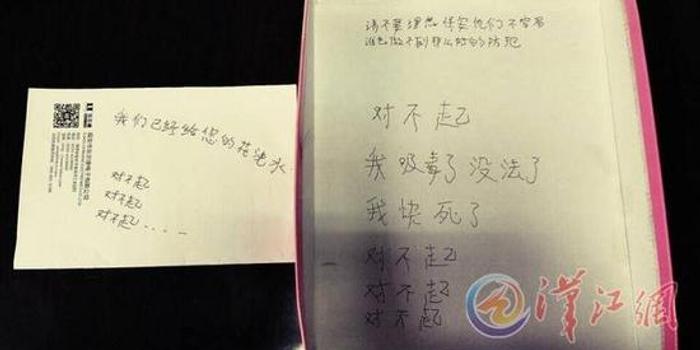 我们已经给您的花浇水
对不起
对不起
对不起....
请不要埋怨保安他们不容易
谁也做不到那么好的防范
对不起
我吸毒了没法了
我快死了
对不起
对不起
对不起
漢江網